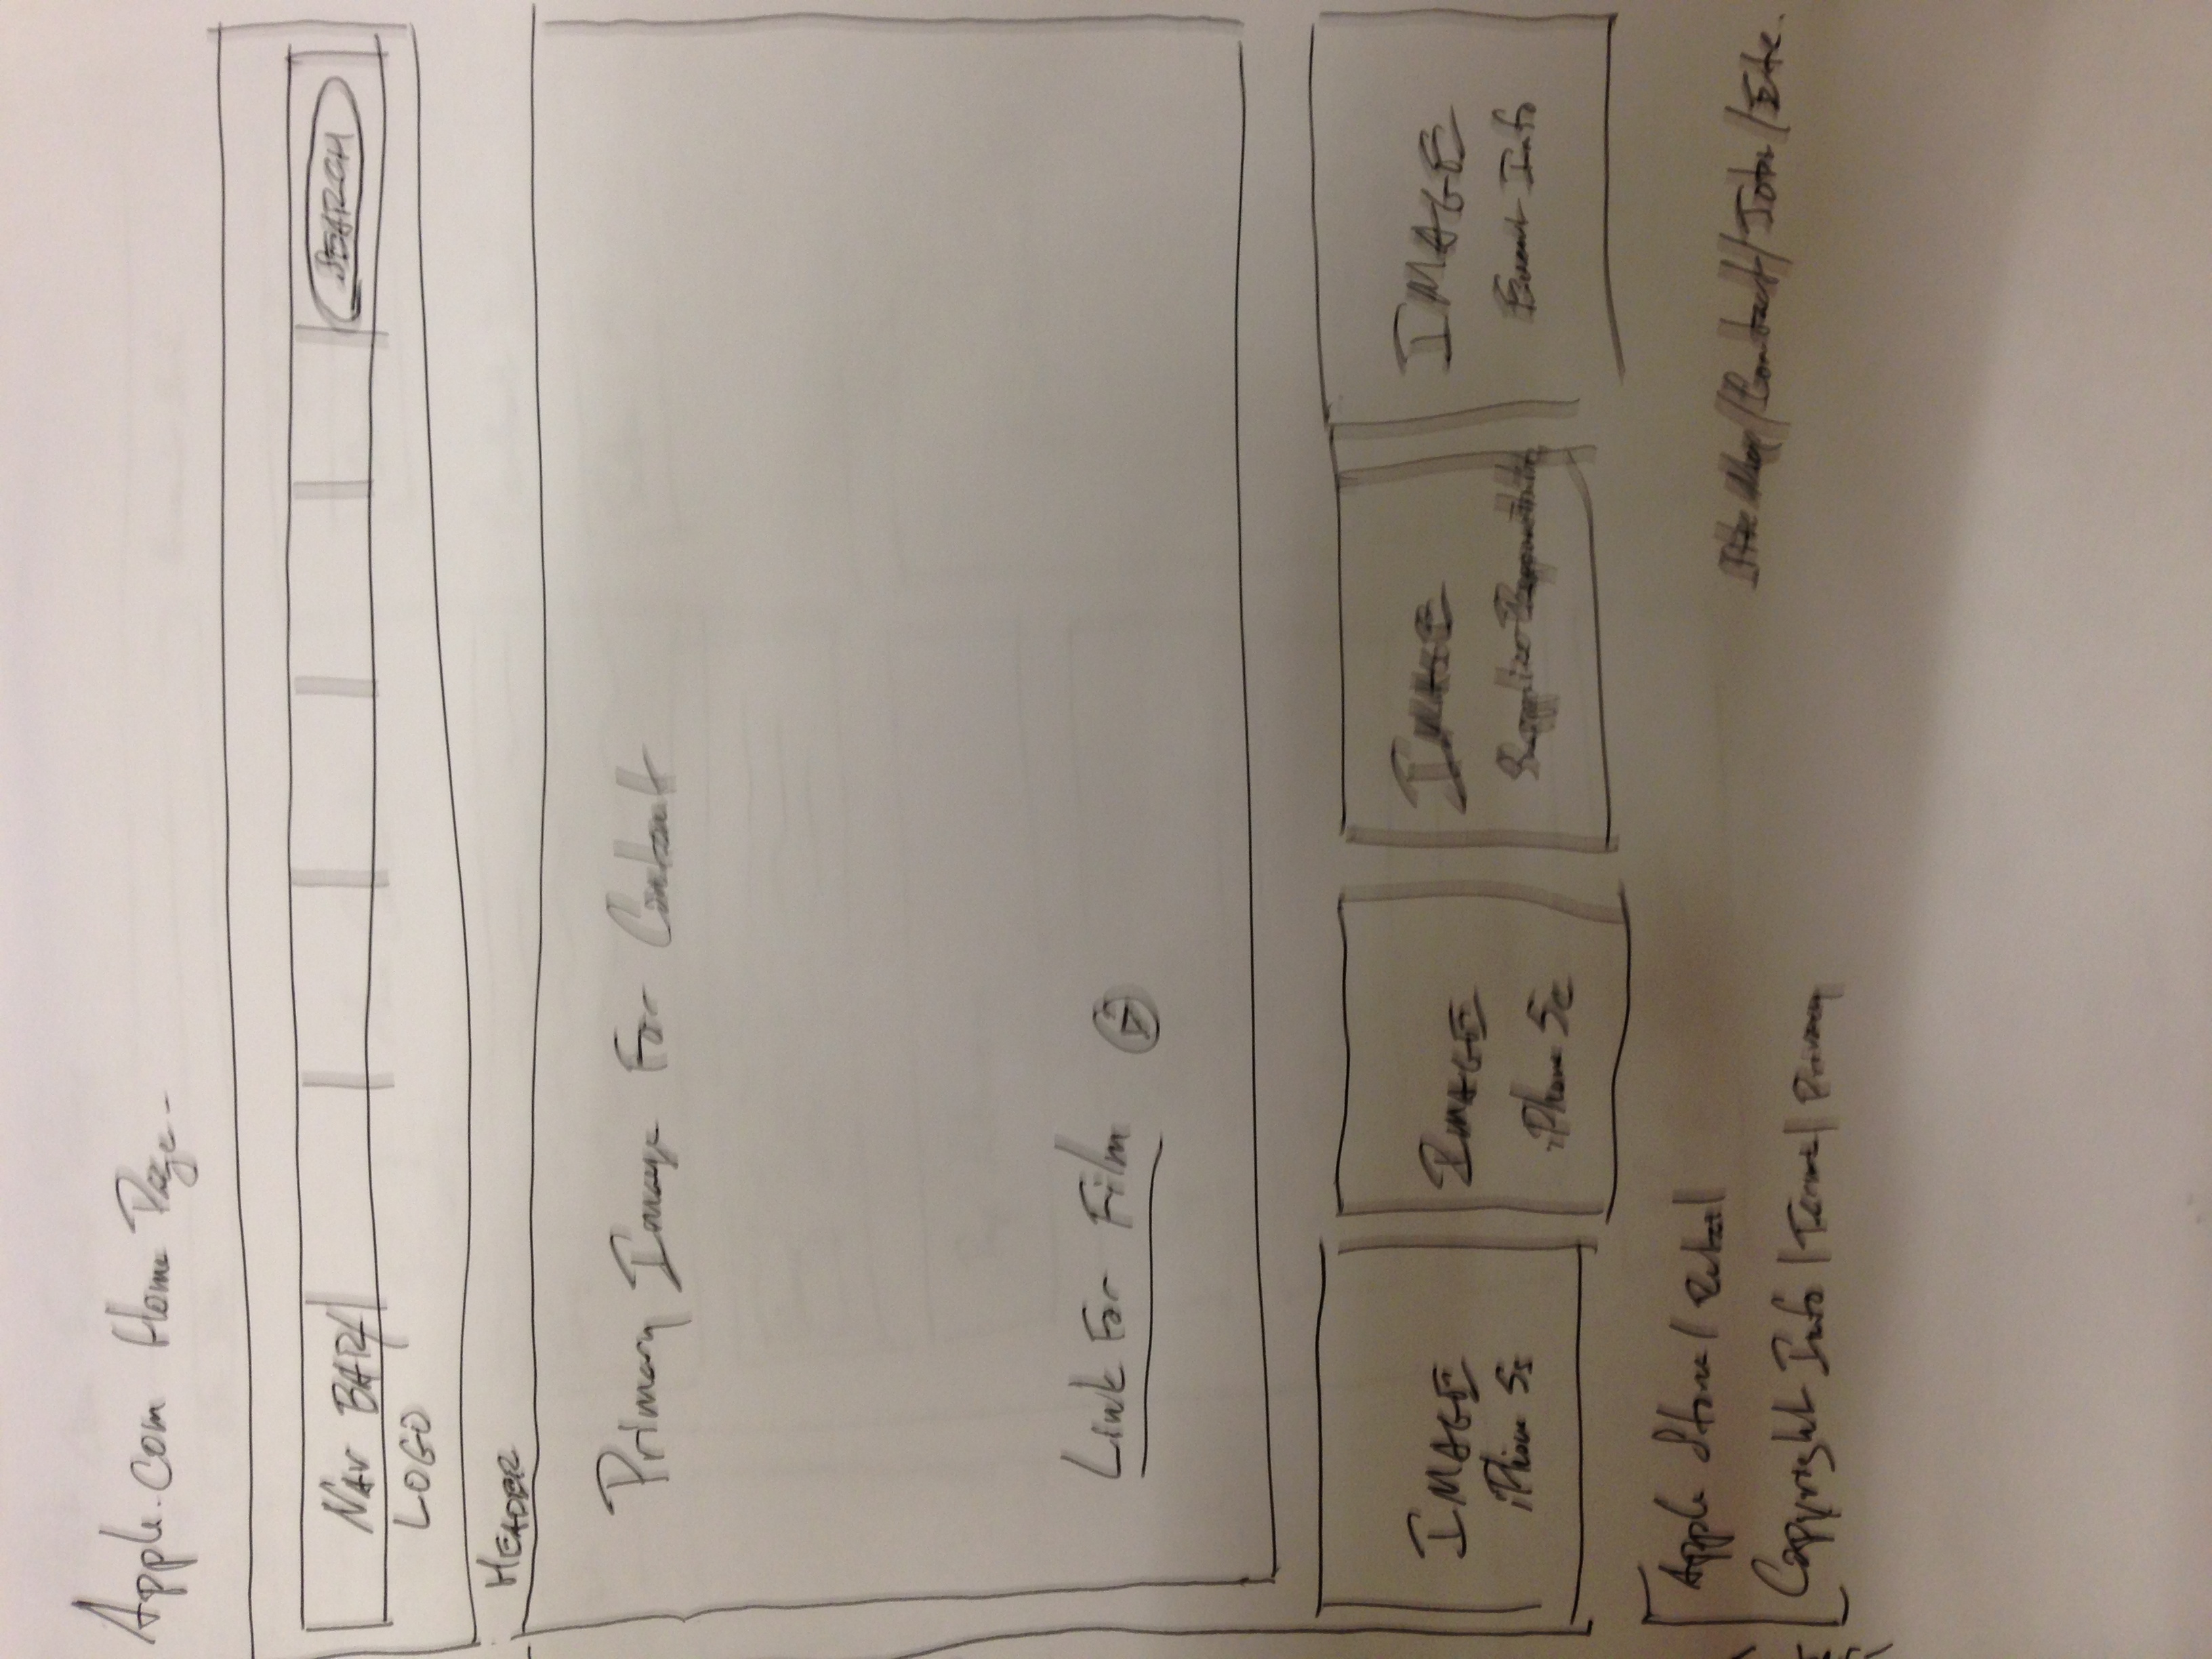 Apple.com Home Page-
NAV BAR/
SEARCH
LOGO
HEADER
Primary Image For Content
Link For Film
IMAGE
iPhone 5s
IMAGE
iPhone 5c
IMAGE
Supplier Responsibility
IMAGE
Event Info
Apple Store/ Retail
Copyright Info / Terms/ Privacy
Site Map/Contact/Jobs/Etc.